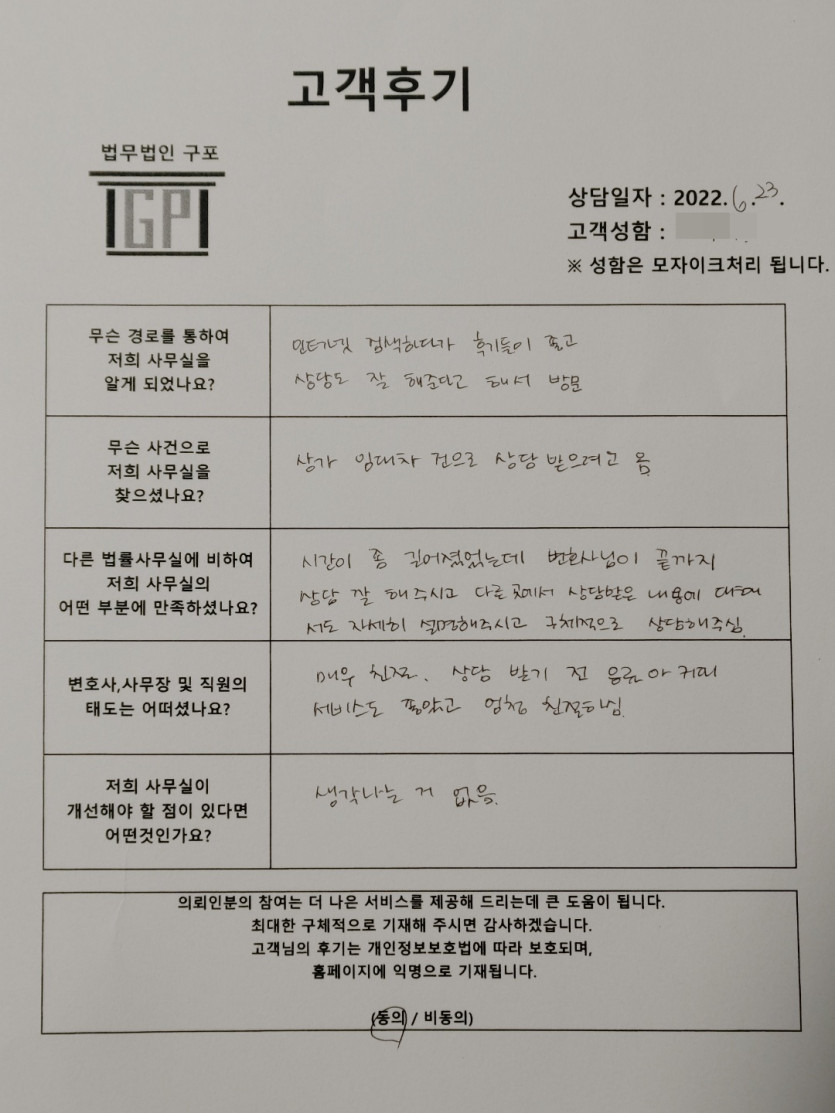 고객후기
법무법인 구포
GP
상담일자 : 2022.6.23.
고객성함 :
※ 성함은 모자이크처리 됩니다.
무슨 경로를 통하여
저희 사무실을
알게 되었나요?
인터넷 검색하다가 후기들이 좋고
상담도 잘 해준다고 해서 방문
무슨 사건으로
저희 사무실을
찾으셨나요?
상가 임대차 건으로 상담 받으려고 옴
다른 법률사무실에 비하여
저희 사무실의
어떤 부분에 만족하셨나요?
시간이 좀 길어졌었는데 변호사님이 끝까지
상담 잘 해주시고 다른 곳에서 상담받은 내용에 대해
서도 자세히 설명해주시고 구체적으로 상담해주심.
변호사,사무장 및 직원의
태도는 어떠셨나요?
매우 친절. 상담 받기 전 음료 커피
서비스도 좋았고 엄청 친절하심.
저희 사무실이
개선해야 할 점이 있다면
어떤것인가요?
생각나는 거 없음.
의뢰인분의 참여는 더 나은 서비스를 제공해 드리는데 큰 도움이 됩니다.
최대한 구체적으로 기재해 주시면 감사하겠습니다.
고객님의 후기는 개인정보보호법에 따라 보호되며,
홈페이지에 익명으로 기재됩니다.
(동의 / 비동의)